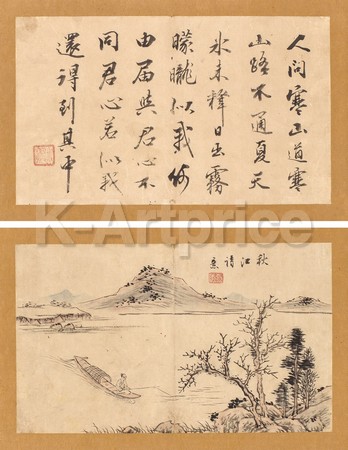 人問寒山道寒
山路不通夏天
氷未釋日出霧
朦朧似我何
由届與君心不
同君心若似我
還得到其中
K-Artprice
秋江詩意